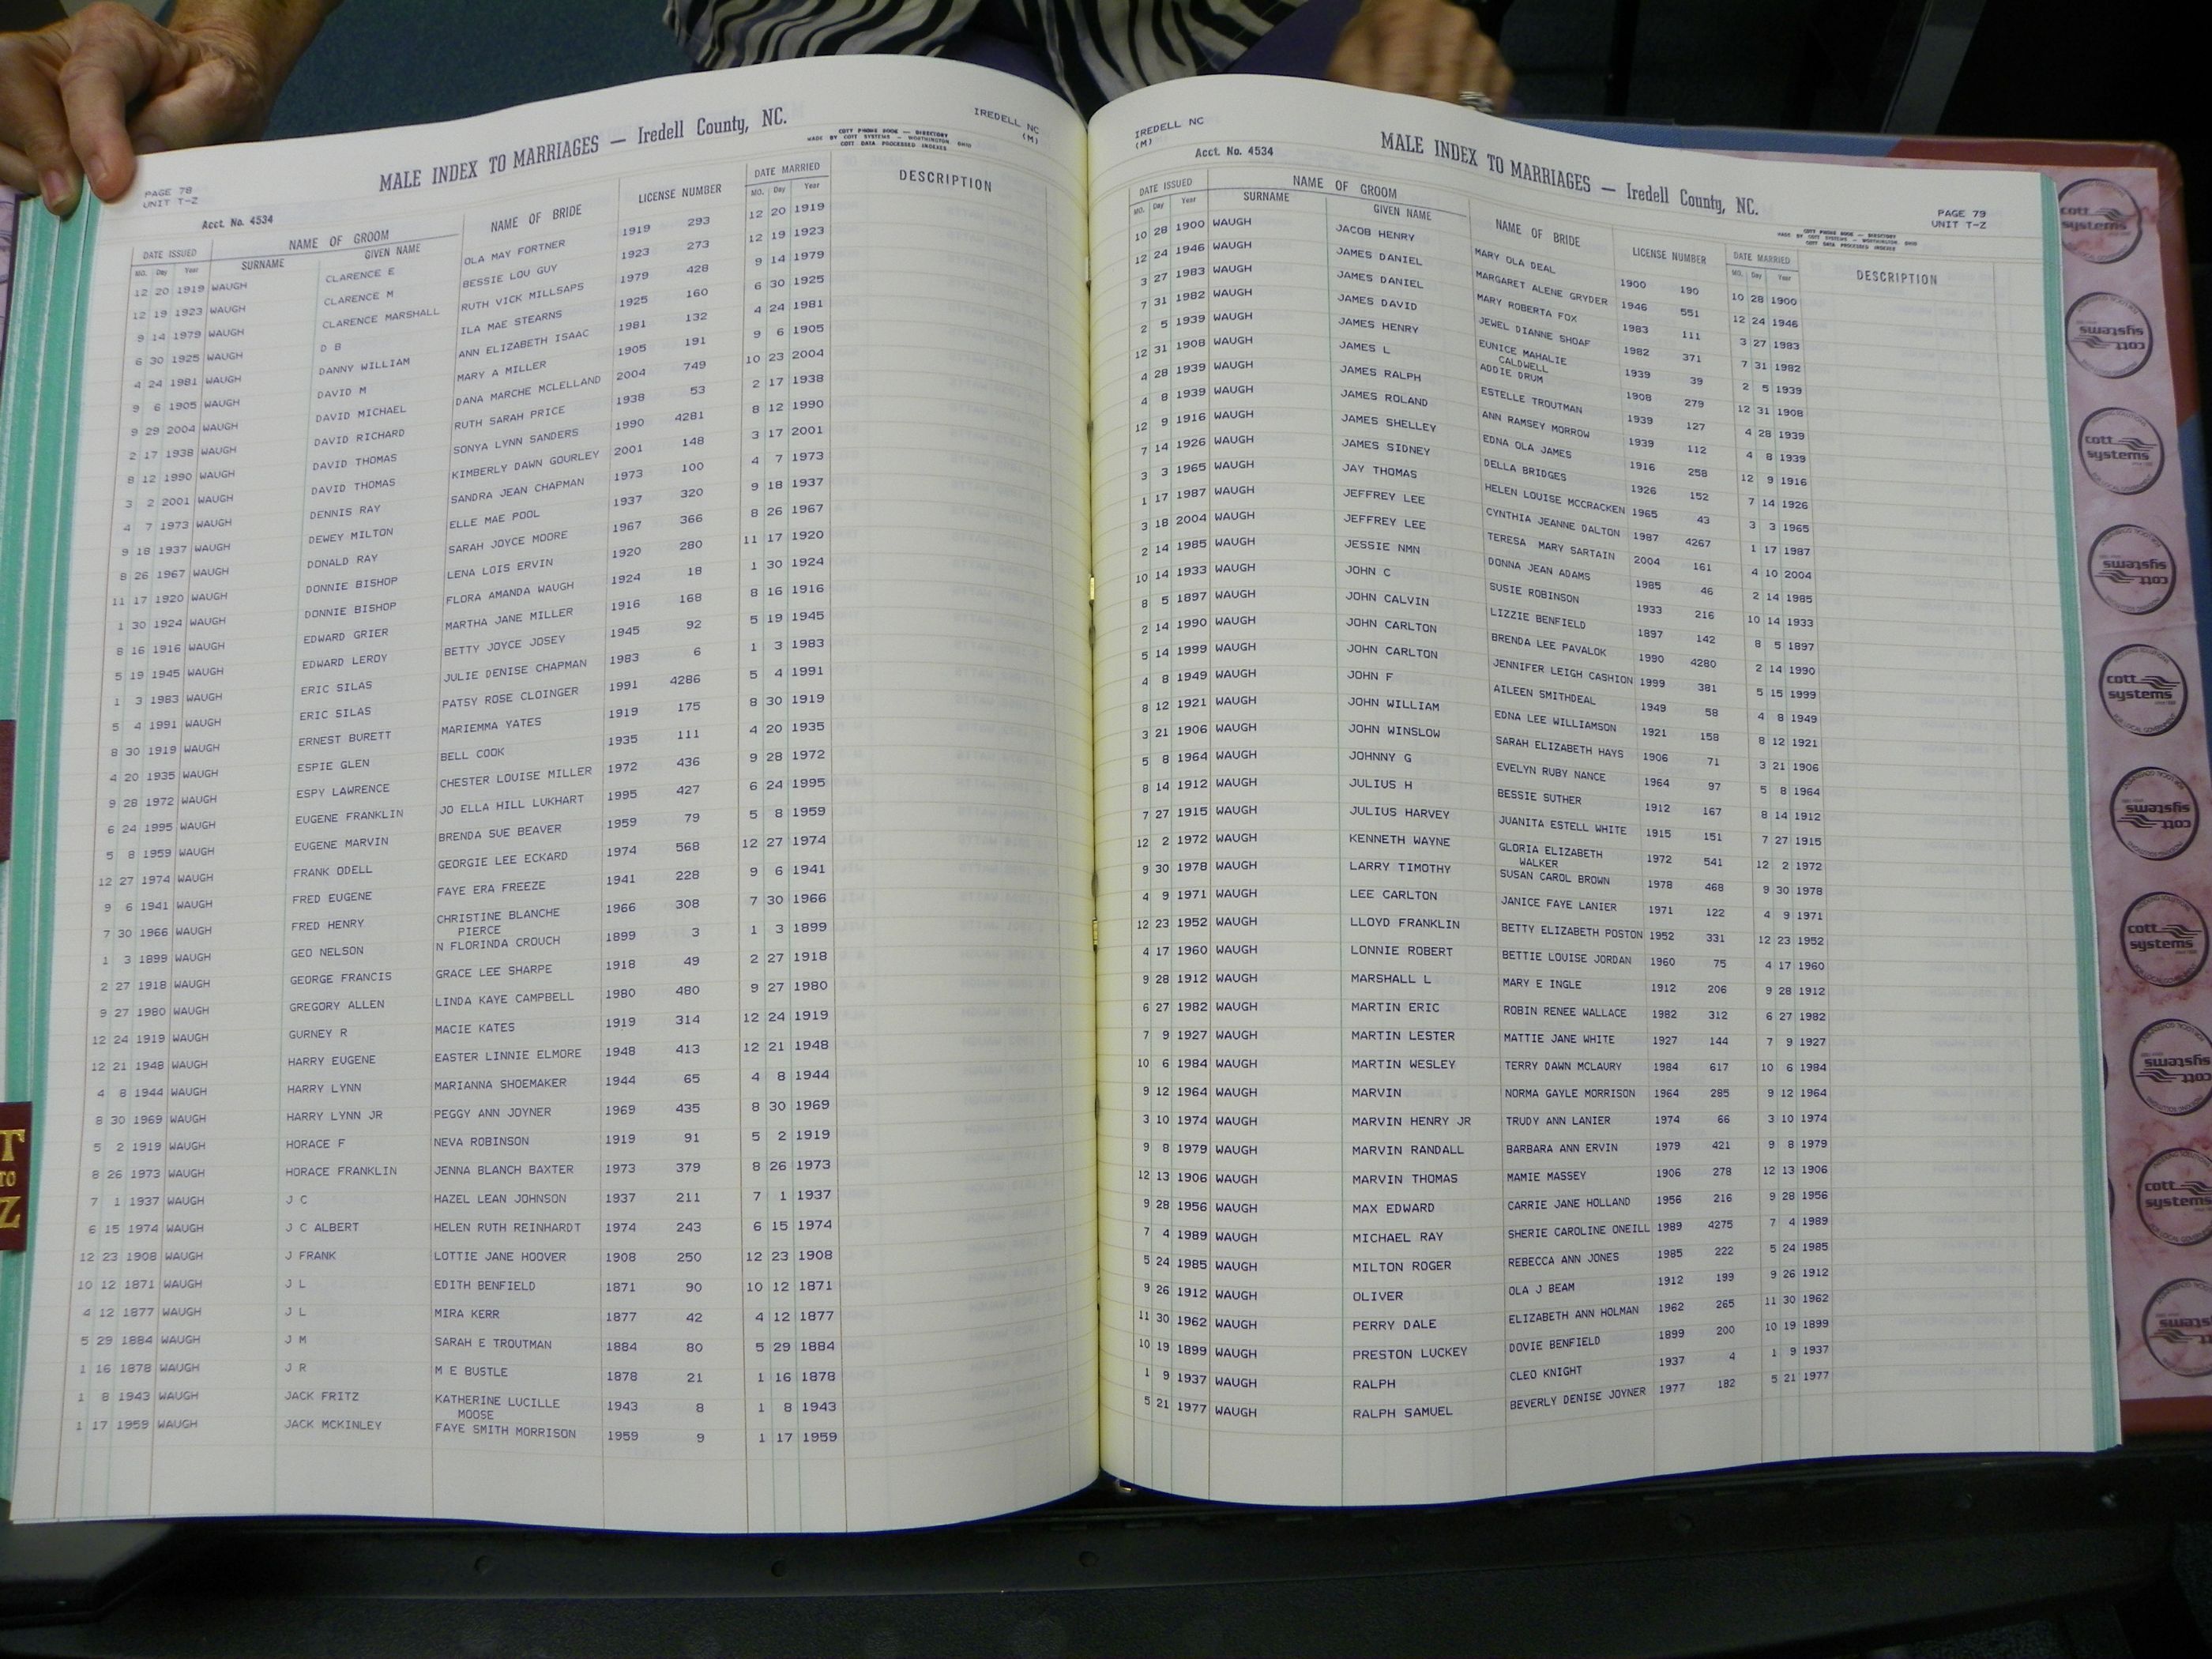 IREDELL NC
(M)
COTT PHONE BOOK — DIRECTORY
MADE BY COTT SYSTEMS — WORTHINGTON, OHIO
COTT DATA PROCESSED INDEXES
MALE INDEX TO MARRIAGES — Iredell County, NC.
PAGE 78
UNIT T-Z
Acct. No. 4534
DATE ISSUED NAME OF GROOM NAME OF BRIDE LICENSE NUMBER DATE MARRIED DESCRIPTION
MO. Day Year SURNAME GIVEN NAME MO. Day Year
12 20 1919 WAUGH CLARENCE E OLA MAY FORTNER 1919 293 12 20 1919
12 19 1923 WAUGH CLARENCE M BESSIE LOU GUY 1923 273 12 19 1923
9 14 1979 WAUGH CLARENCE MARSHALL RUTH VICK MILLSAPS 1979 428 9 14 1979
6 30 1925 WAUGH D B ILA MAE STEARNS 1925 160 6 30 1925
4 24 1981 WAUGH DANNY WILLIAM ANN ELIZABETH ISAAC 1981 132 4 24 1981
9 6 1905 WAUGH DAVID M MARY A MILLER 1905 191 9 6 1905
9 29 2004 WAUGH DAVID MICHAEL DANA MARCHE MCLELLAND 2004 749 10 23 2004
2 17 1938 WAUGH DAVID RICHARD RUTH SARAH PRICE 1938 53 2 17 1938
8 12 1990 WAUGH DAVID THOMAS SONYA LYNN SANDERS 1990 4281 8 12 1990
3 2 2001 WAUGH DAVID THOMAS KIMBERLY DAWN GOURLEY 2001 148 3 17 2001
4 7 1973 WAUGH DENNIS RAY SANDRA JEAN CHAPMAN 1973 100 4 7 1973
9 18 1937 WAUGH DEWEY MILTON ELLE MAE POOL 1937 320 9 18 1937
8 26 1967 WAUGH DONALD RAY SARAH JOYCE MOORE 1967 366 8 26 1967
11 17 1920 WAUGH DONNIE BISHOP LENA LOIS ERVIN 1920 280 11 17 1920
1 30 1924 WAUGH DONNIE BISHOP FLORA AMANDA WAUGH 1924 18 1 30 1924
8 16 1916 WAUGH EDWARD GRIER MARTHA JANE MILLER 1916 168 8 16 1916
5 19 1945 WAUGH EDWARD LEROY BETTY JOYCE JOSEY 1945 92 5 19 1945
1 3 1983 WAUGH ERIC SILAS JULIE DENISE CHAPMAN 1983 6 1 3 1983
5 4 1991 WAUGH ERIC SILAS PATSY ROSE CLOINGER 1991 4286 5 4 1991
8 30 1919 WAUGH ERNEST BURETT MARIEMMA YATES 1919 175 8 30 1919
4 20 1935 WAUGH ESPIE GLEN BELL COOK 1935 111 4 20 1935
9 28 1972 WAUGH ESPY LAWRENCE CHESTER LOUISE MILLER 1972 436 9 28 1972
6 24 1995 WAUGH EUGENE FRANKLIN JO ELLA HILL LUKHART 1995 427 6 24 1995
5 8 1959 WAUGH EUGENE MARVIN BRENDA SUE BEAVER 1959 79 5 8 1959
12 27 1974 WAUGH FRANK ODELL GEORGIE LEE ECKARD 1974 568 12 27 1974
9 6 1941 WAUGH FRED EUGENE FAYE ERA FREEZE 1941 228 9 6 1941
7 30 1966 WAUGH FRED HENRY CHRISTINE BLANCHE 1966 308 7 30 1966
PIERCE
1 3 1899 WAUGH GEO NELSON N FLORINDA CROUCH 1899 3 1 3 1899
2 27 1918 WAUGH GEORGE FRANCIS GRACE LEE SHARPE 1918 49 2 27 1918
9 27 1980 WAUGH GREGORY ALLEN LINDA KAYE CAMPBELL 1980 480 9 27 1980
12 24 1919 WAUGH GURNEY R MACIE KATES 1919 314 12 24 1919
12 21 1948 WAUGH HARRY EUGENE EASTER LINNIE ELMORE 1948 413 12 21 1948
4 8 1944 WAUGH HARRY LYNN MARIANNA SHOEMAKER 1944 65 4 8 1944
8 30 1969 WAUGH HARRY LYNN JR PEGGY ANN JOYNER 1969 435 8 30 1969
5 2 1919 WAUGH HORACE F NEVA ROBINSON 1919 91 5 2 1919
8 26 1973 WAUGH HORACE FRANKLIN JENNA BLANCH BAXTER 1973 379 8 26 1973
7 1 1937 WAUGH J C HAZEL LEAN JOHNSON 1937 211 7 1 1937
6 15 1974 WAUGH J C ALBERT HELEN RUTH REINHARDT 1974 243 6 15 1974
12 23 1908 WAUGH J FRANK LOTTIE JANE HOOVER 1908 250 12 23 1908
10 12 1871 WAUGH J L EDITH BENFIELD 1871 90 10 12 1871
4 12 1877 WAUGH J L MIRA KERR 1877 42 4 12 1877
5 29 1884 WAUGH J M SARAH E TROUTMAN 1884 80 5 29 1884
1 16 1878 WAUGH J R M E BUSTLE 1878 21 1 16 1878
1 8 1943 WAUGH JACK FRITZ KATHERINE LUCILLE 1943 8 1 8 1943
MOOSE
1 17 1959 WAUGH JACK MCKINLEY FAYE SMITH MORRISON 1959 9 1 17 1959
T
TO
Z
IREDELL NC
(M)
Acct. No. 4534
MALE INDEX TO MARRIAGES — Iredell County, NC.
PAGE 79
UNIT T-Z
COTT PHONE BOOK — DIRECTORY
MADE BY COTT SYSTEMS — WORTHINGTON, OHIO
COTT DATA PROCESSED INDEXES
DATE ISSUED NAME OF GROOM NAME OF BRIDE LICENSE NUMBER DATE MARRIED DESCRIPTION
MO. Day Year SURNAME GIVEN NAME MO. Day Year
10 28 1900 WAUGH JACOB HENRY MARY OLA DEAL 1900 190 10 28 1900
12 24 1946 WAUGH JAMES DANIEL MARGARET ALENE GRYDER 1946 551 12 24 1946
3 27 1983 WAUGH JAMES DANIEL MARY ROBERTA FOX 1983 111 3 27 1983
7 31 1982 WAUGH JAMES DAVID JEWEL DIANNE SHOAF 1982 371 7 31 1982
2 5 1939 WAUGH JAMES HENRY EUNICE MAHALIE 1939 39 2 5 1939
CALDWELL
12 31 1908 WAUGH JAMES L ADDIE DRUM 1908 279 12 31 1908
4 28 1939 WAUGH JAMES RALPH ESTELLE TROUTMAN 1939 127 4 28 1939
4 8 1939 WAUGH JAMES ROLAND ANN RAMSEY MORROW 1939 112 4 8 1939
12 9 1916 WAUGH JAMES SHELLEY EDNA OLA JAMES 1916 258 12 9 1916
7 14 1926 WAUGH JAMES SIDNEY DELLA BRIDGES 1926 152 7 14 1926
3 3 1965 WAUGH JAY THOMAS HELEN LOUISE MCCRACKEN 1965 43 3 3 1965
1 17 1987 WAUGH JEFFREY LEE CYNTHIA JEANNE DALTON 1987 4267 1 17 1987
3 18 2004 WAUGH JEFFREY LEE TERESA MARY SARTAIN 2004 161 4 10 2004
2 14 1985 WAUGH JESSIE NMN DONNA JEAN ADAMS 1985 46 2 14 1985
10 14 1933 WAUGH JOHN C SUSIE ROBINSON 1933 216 10 14 1933
8 5 1897 WAUGH JOHN CALVIN LIZZIE BENFIELD 1897 142 8 5 1897
2 14 1990 WAUGH JOHN CARLTON BRENDA LEE PAVALOK 1990 4280 2 14 1990
5 14 1999 WAUGH JOHN CARLTON JENNIFER LEIGH CASHION 1999 381 5 15 1999
4 8 1949 WAUGH JOHN F AILEEN SMITHDEAL 1949 58 4 8 1949
8 12 1921 WAUGH JOHN WILLIAM EDNA LEE WILLIAMSON 1921 158 8 12 1921
3 21 1906 WAUGH JOHN WINSLOW SARAH ELIZABETH HAYS 1906 71 3 21 1906
5 8 1964 WAUGH JOHNNY G EVELYN RUBY NANCE 1964 97 5 8 1964
8 14 1912 WAUGH JULIUS H BESSIE SUTHER 1912 167 8 14 1912
7 27 1915 WAUGH JULIUS HARVEY JUANITA ESTELL WHITE 1915 151 7 27 1915
12 2 1972 WAUGH KENNETH WAYNE GLORIA ELIZABETH 1972 541 12 2 1972
WALKER
9 30 1978 WAUGH LARRY TIMOTHY SUSAN CAROL BROWN 1978 468 9 30 1978
4 9 1971 WAUGH LEE CARLTON JANICE FAYE LANIER 1971 122 4 9 1971
12 23 1952 WAUGH LLOYD FRANKLIN BETTY ELIZABETH POSTON 1952 331 12 23 1952
4 17 1960 WAUGH LONNIE ROBERT BETTIE LOUISE JORDAN 1960 75 4 17 1960
9 28 1912 WAUGH MARSHALL L MARY E INGLE 1912 206 9 28 1912
6 27 1982 WAUGH MARTIN ERIC ROBIN RENEE WALLACE 1982 312 6 27 1982
7 9 1927 WAUGH MARTIN LESTER MATTIE JANE WHITE 1927 144 7 9 1927
10 6 1984 WAUGH MARTIN WESLEY TERRY DAWN MCLAURY 1984 617 10 6 1984
9 12 1964 WAUGH MARVIN NORMA GAYLE MORRISON 1964 285 9 12 1964
3 10 1974 WAUGH MARVIN HENRY JR TRUDY ANN LANIER 1974 66 3 10 1974
9 8 1979 WAUGH MARVIN RANDALL BARBARA ANN ERVIN 1979 421 9 8 1979
12 13 1906 WAUGH MARVIN THOMAS MAMIE MASSEY 1906 278 12 13 1906
9 28 1956 WAUGH MAX EDWARD CARRIE JANE HOLLAND 1956 216 9 28 1956
7 4 1989 WAUGH MICHAEL RAY SHERIE CAROLINE ONEILL 1989 4275 7 4 1989
5 24 1985 WAUGH MILTON ROGER REBECCA ANN JONES 1985 222 5 24 1985
9 26 1912 WAUGH OLIVER OLA J BEAM 1912 199 9 26 1912
11 30 1962 WAUGH PERRY DALE ELIZABETH ANN HOLMAN 1962 265 11 30 1962
10 19 1899 WAUGH PRESTON LUCKEY DOVIE BENFIELD 1899 200 10 19 1899
1 9 1937 WAUGH RALPH CLEO KNIGHT 1937 4 1 9 1937
5 21 1977 WAUGH RALPH SAMUEL BEVERLY DENISE JOYNER 1977 182 5 21 1977
cott
systems
cott
systems
cott
systems
cott
systems
cott
systems
cott
systems
cott
systems
cott
systems
cott
systems
cott
systems